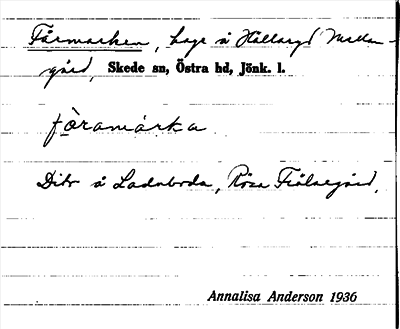 Fårmarken, hage å Hällaryd Mellan-
gård, Skede sn, Östra hd, Jönk. l.
fòramárka
Dito å Ladubroda, Röda Fiälsegård,
Annalisa Anderson 1936